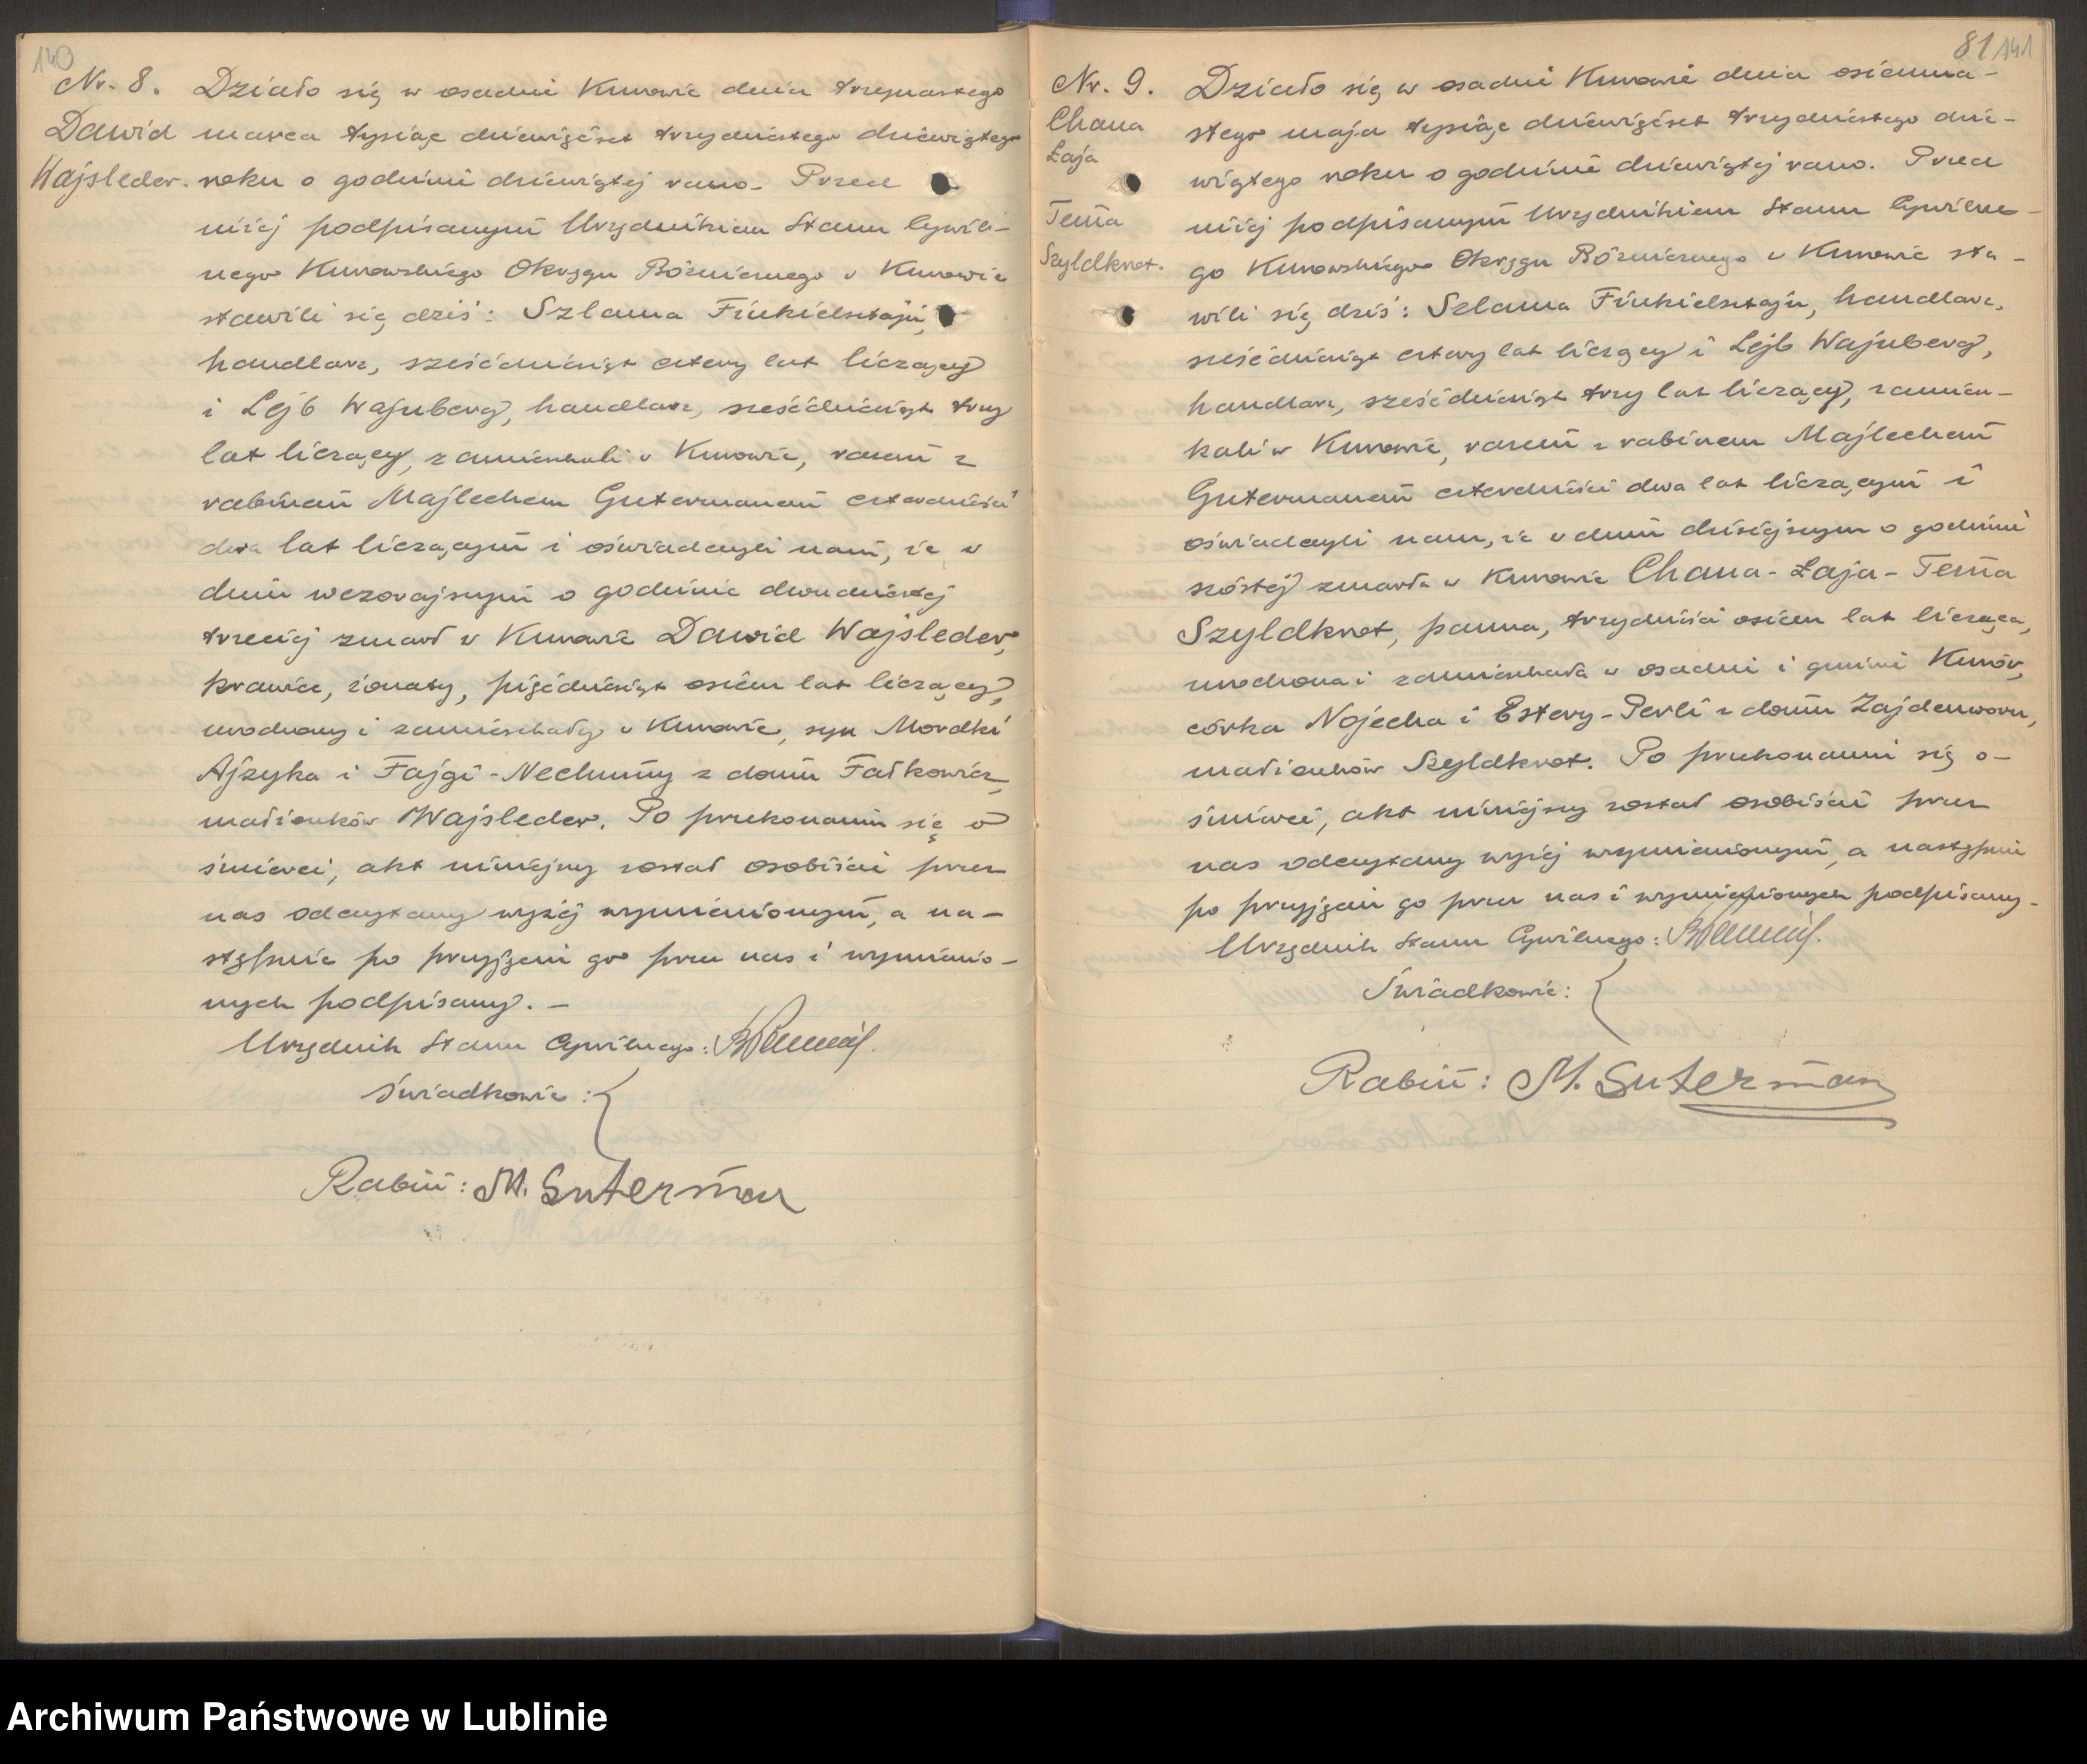 140
Nr. 8.
Dawid
Wajsleder.
Działo się w osadzie Kurowie dnia trzynastego
marca tysiąc dziewięćset trzydziestego dziewiątego
roku o godzinie dziewiątej rano. Przed
niżej podpisanym Urzędnikiem Stanu Cywil-
nego Kurowskiego Okręgu Bóżniczego w Kurowie
stawili się dziś: Szlama Finkielsztajn,
handlarz, sześćdziesiąt cztery lat liczący
i Lejb Wajnberg, handlarz, sześćdziesiąt trzy
lat liczący, zamieszkali w Kurowie, razem z
rabinem Majlechem Gutermanem czterdzieści
dwa lat liczącym i oświadczyli nam, że w
dniu wczorajszym o godzinie dwudziestej
trzeciej zmarł w Kurowie Dawid Wajsleder,
krawiec, żonaty, pięćdziesiąt osiem lat liczący,
urodzony i zamieszkały w Kurowie, syn Mordki
Ajzyka i Fajgi-Nechumy z domu Fałkowicz,
małżonków Wajsleder. Po przekonaniu się o
śmierci, akt niniejszy został osobiście przez
nas odczytany wyżej wymienionym, a na-
stępnie po przyjęciu go przez nas i wymienio-
nych podpisany. -
Urzędnik Stanu Cywilnego:
Świadkowie:
Rabin: M. Guterman
81 141
Nr. 9.
Chana
Łaja
Tema
Szyldkret.
Działo się w osadzie Kurowie dnia osiemna-
stego maja tysiąc dziewięćset trzydziestego dzie-
wiątego roku o godzinie dziewiątej rano. Przed
niżej podpisanym Urzędnikiem Stanu Cywilne-
go Kurowskiego Okręgu Bóżniczego w Kurowie sta-
wili się dziś: Szlama Finkielsztajn, handlarz,
sześćdziesiąt cztery lat liczący i Lejb Wajnberg,
handlarz, sześćdziesiąt trzy lat liczący, zamiesz-
kali w Kurowie, razem z rabinem Majlechem
Gutermanem czterdzieści dwa lat liczącym i
oświadczyli nam, że w dniu dzisiejszym o godzinie
szóstej zmarła w Kurowie Chana-Łaja-Tema
Szyldkret, panna, trzydzieści osiem lat licząca,
urodzona i zamieszkała w osadzie i gminie Kurów,
córka Nojecha i Estery-Perli z domu Zajdenworm,
małżonków Szyldkret. Po przekonaniu się o-
śmierci, akt niniejszy został osobiście przez
nas odczytany wyżej wymienionym, a następnie
po przyjęciu go przez nas i wymienionych podpisany.
Urzędnik Stanu Cywilnego:
Świadkowie:
Rabin: M. Guterman
Archiwum Państwowe w Lublinie